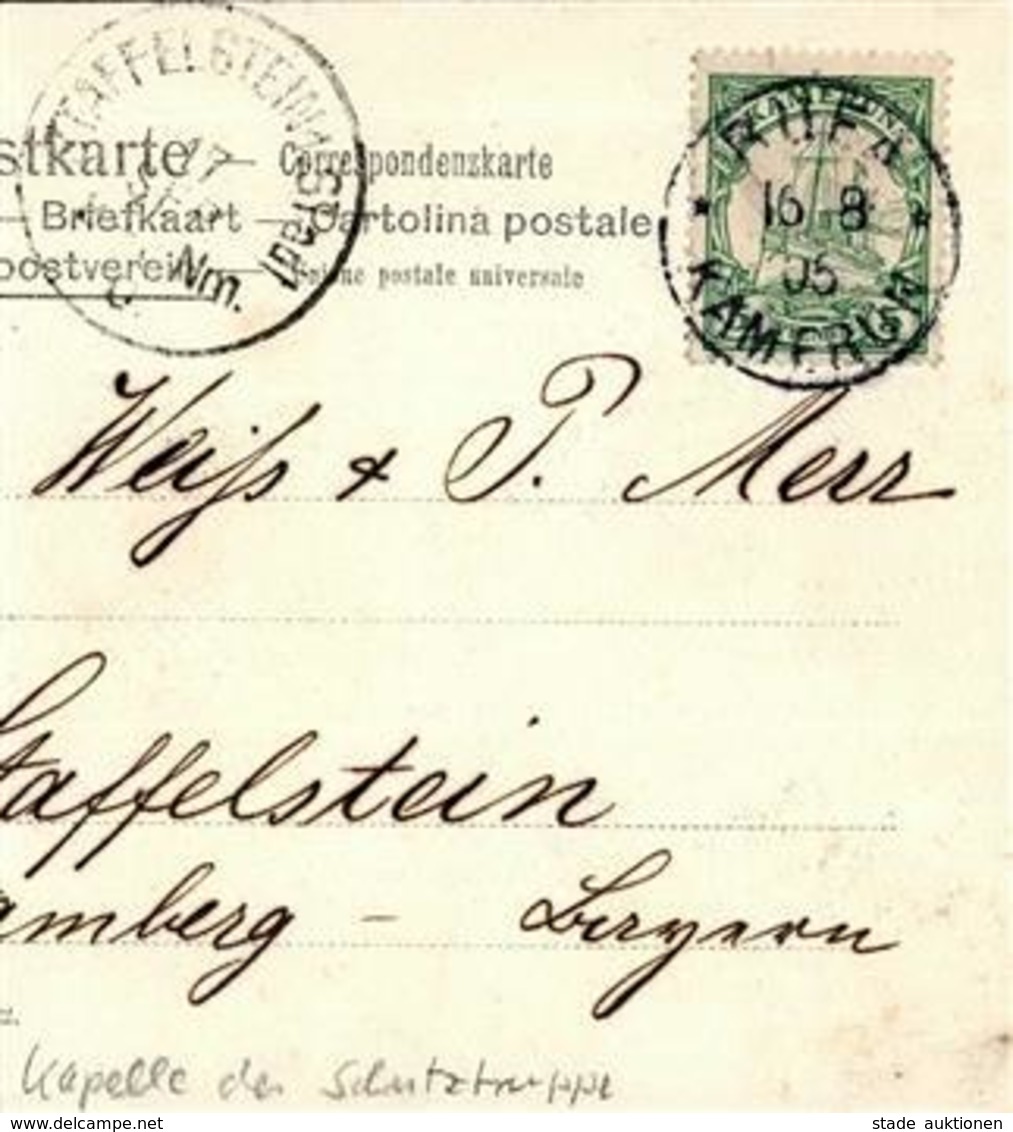 STAFFELSTEIN
17
Nm.
stkarte — Correspondenzkarte
— Briefkaart — Cartolina postale
postverein — postale universale
KAMERUN
BUEA
16 8
05
KAMERUN
Weiss & P. Merr
Staffelstein
amberg – Bayern
z.
Kapelle der Schutztruppe
stade auktionen